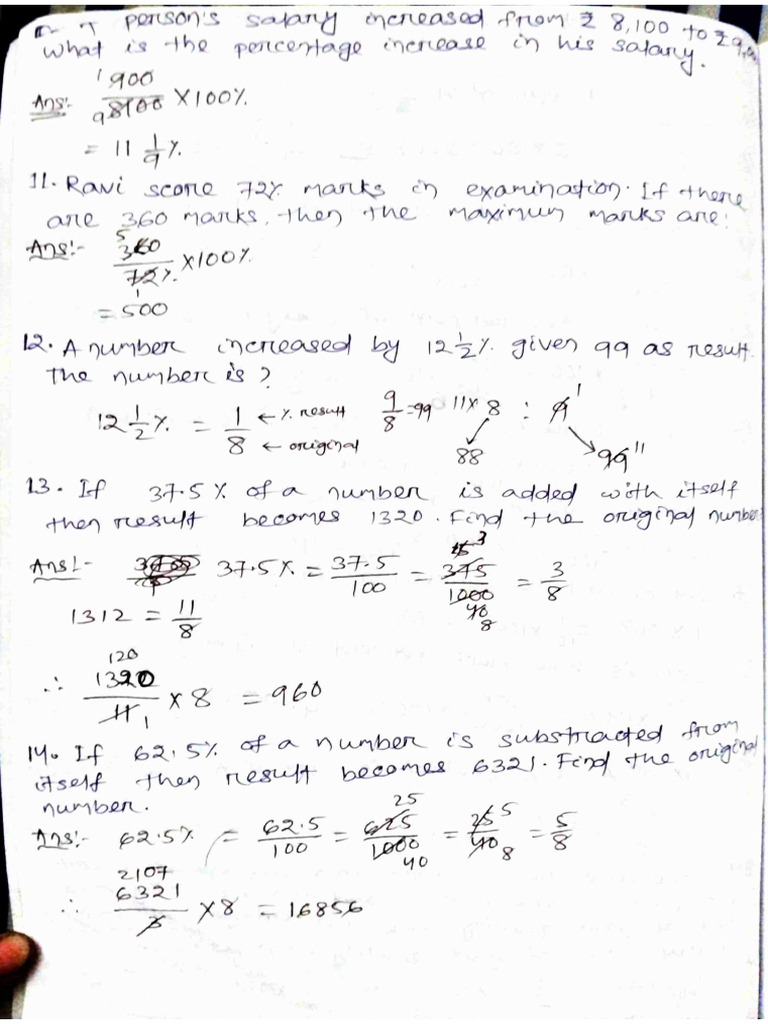 A person's salary increased from ₹ 8,100 to ₹9,
What is the percentage increase in his salary.
Ans:- 1 900 / 9 8100 × 100%
= 11 1/9 %.
11. Ravi score 72% marks in examination. If there
are 360 marks, then the maximum marks are:
Ans:- 5 360 / 72% 1 × 100%
= 500
12. A number increased by 12 1/2 % given 99 as result.
the number is?
12 1/2 % = 1/8 ← % result ← original 9/8 = 99 11 × 8 : 9 1
88 99 11
13. If 37.5% of a number is added with itself
then result becomes 1320. Find the original number
Ans:- 37.5% = 37.5/100 = 15 3 375 / 1000 40 8 = 3/8
1312 = 11/8
∴ 120 1320 / 11 1 × 8 = 960
14. If 62.5% of a number is substracted from
itself then result becomes 6321. Find the original
number.
Ans:- 62.5% = 62.5/100 = 25 625 / 1000 40 = 25 5 / 40 8 = 5/8
∴ 2107 6321 / 3 × 8 = 16856